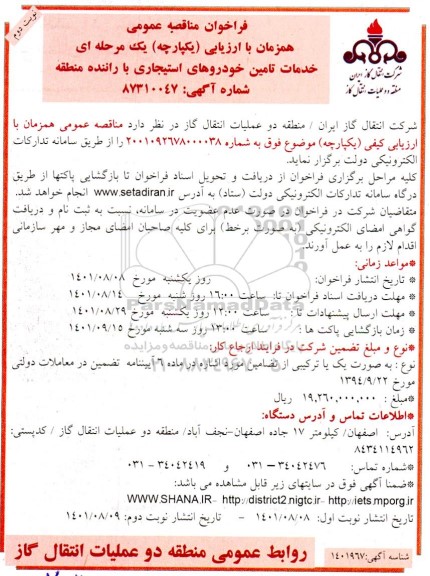 نوبت دوم
فراخوان مناقصه عمومی
همزمان با ارزیابی (یکپارچه) یک مرحله ای
خدمات تامین خودروهای استیجاری با راننده منطقه
شماره آگهی: ۸۷۳۱۰۰۴۷
شرکت انتقال گاز ایران
منطقه دو عملیات انتقال گاز
شرکت انتقال گاز ایران / منطقه دو عملیات انتقال گاز در نظر دارد مناقصه عمومی همزمان با
ارزیابی کیفی (یکپارچه) موضوع فوق به شماره ۲۰۰۱۰۹۲۶۷۸۰۰۰۰۳۸ را از طریق سامانه تدارکات
الکترونیکی دولت برگزار نماید.
کلیه مراحل برگزاری فراخوان از دریافت و تحویل اسناد فراخوان تا بازگشایی پاکتها از طریق
درگاه سامانه تدارکات الکترونیکی دولت (ستاد) به آدرس www.setadiran.ir انجام خواهد شد.
متقاضیان شرکت در فراخوان در صورت عدم عضویت در سامانه، نسبت به ثبت نام و دریافت
گواهی امضای الکترونیکی (بصورت برخط) برای کلیه صاحبان امضای مجاز و مهر سازمانی
اقدام لازم را به عمل آورند.
*مواعد زمانی:
* تاریخ انتشار فراخوان: روز یکشنبه مورخ ۱۴۰۱/۰۸/۰۸
* مهلت دریافت اسناد فراخوان تا: ساعت ۱۶:۰۰ روز شنبه مورخ ۱۴۰۱/۰۸/۱۴
* مهلت ارسال پیشنهادات تا: ساعت ۱۲:۰۰ روز یکشنبه مورخ ۱۴۰۱/۰۸/۲۹
* زمان بازگشایی پاکت ها: ساعت ۱۳:۰۰ روز سه شنبه مورخ ۱۴۰۱/۰۹/۱۵
*نوع و مبلغ تضمین شرکت در فرایند ارجاع کار:
* نوع: به صورت یک یا ترکیبی از تضامین مورد اشاره در ماده ۶ آیینامه تضمین در معاملات دولتی
مورخ ۱۳۹۴/۹/۲۲
*مبلغ: ۱۹,۲۶۰,۰۰۰,۰۰۰ ریال
*اطلاعات تماس و آدرس دستگاه:
آدرس: اصفهان/ کیلومتر ۱۷ جاده اصفهان-نجف آباد/ منطقه دو عملیات انتقال گاز / کدپستی:
۸۴۳۴۱۱۴۹۶۲
*شماره تماس: ۳۴۰۴۲۴۷۶ - ۰۳۱ و ۳۴۰۴۲۴۱۹ - ۰۳۱
*ضمنا آگهی فوق در سایتهای زیر قابل مشاهده می باشد:
WWW.SHANA.IR- http://district2.nigtc.ir- http://iets.mporg.ir
تاریخ انتشار نوبت اول: ۱۴۰۱/۰۸/۰۸ - تاریخ انتشار نوبت دوم: ۱۴۰۱/۰۸/۰۹
شناسه آگهی: ۱۴۰۱۹۶۷
روابط عمومی منطقه دو عملیات انتقال گاز